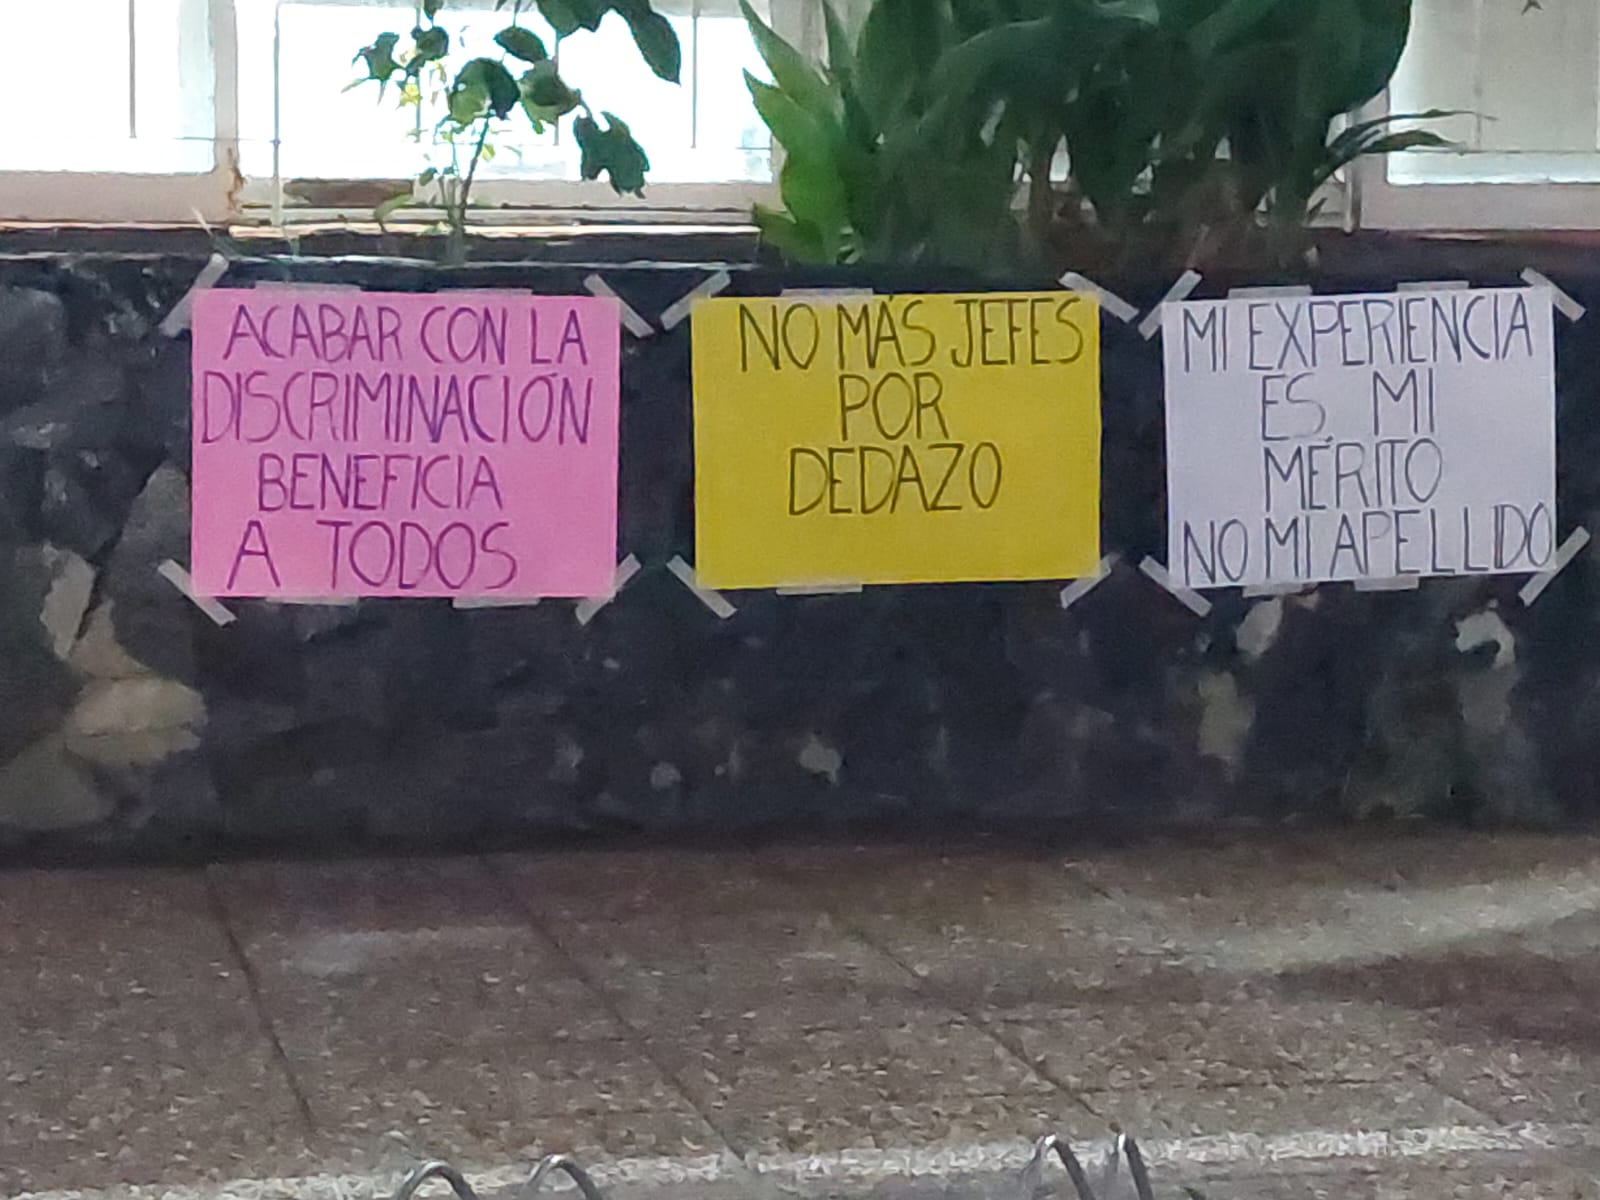 ACABAR CON LA
DISCRIMINACIÓN
BENEFICIA
A TODOS
NO MÁS JEFES
POR
DEDAZO
MI EXPERIENCIA
ES MI
MÉRITO
NO MI APELLIDO